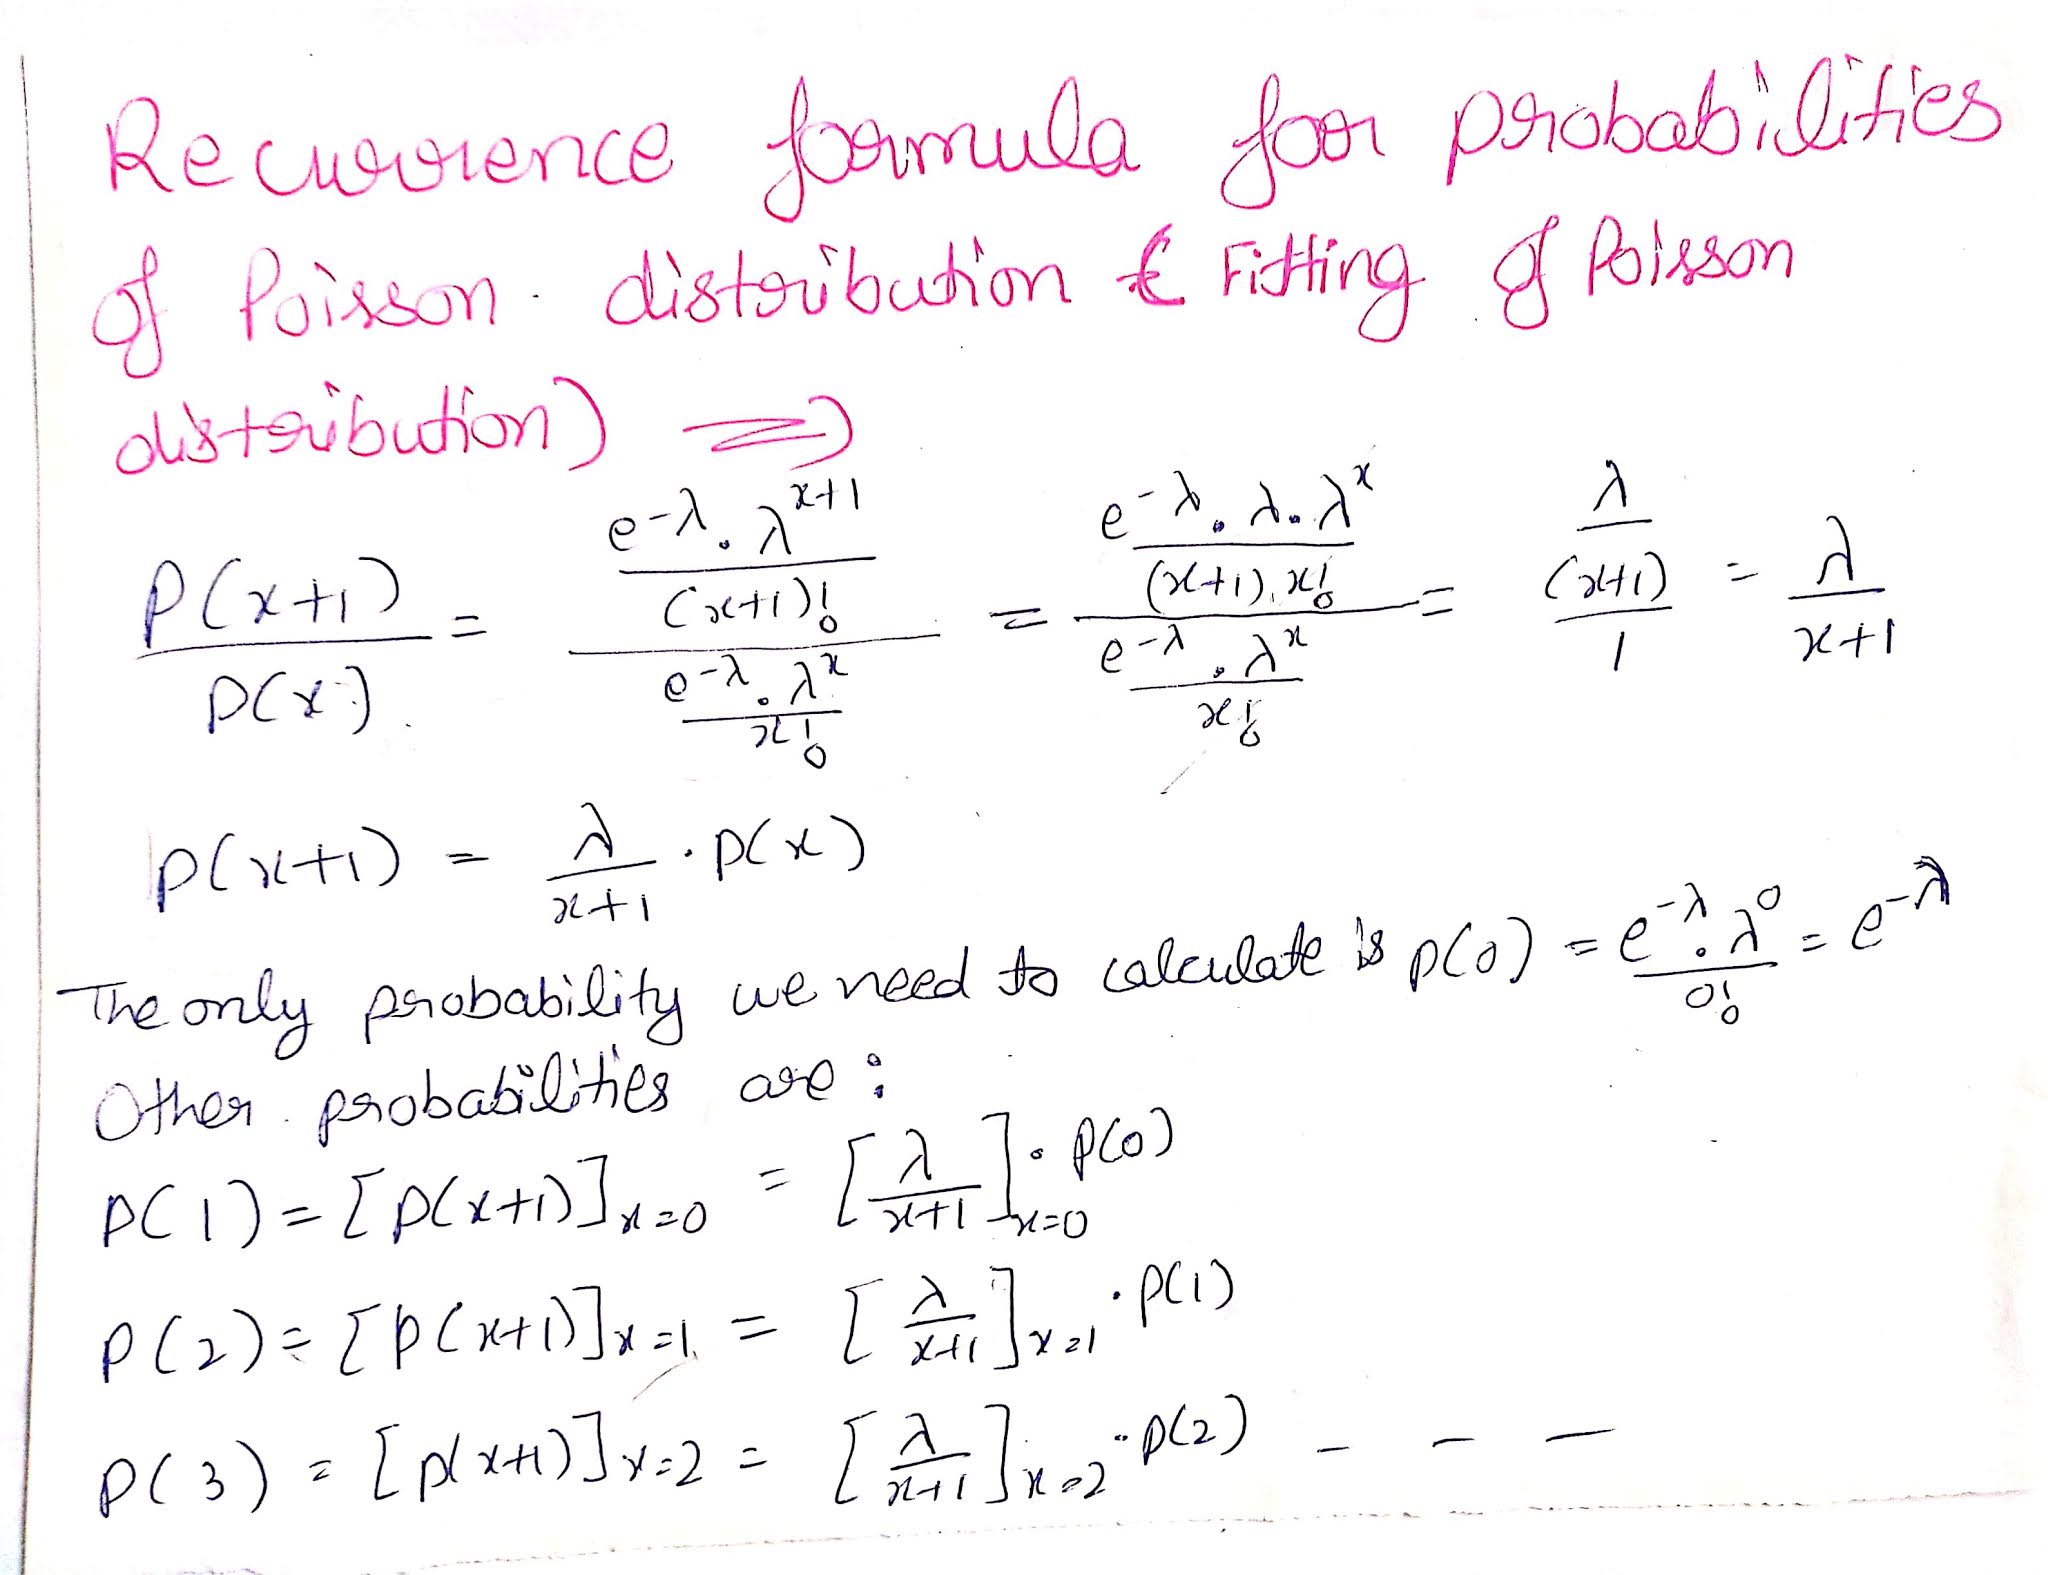 Recurrence formula for probabilities
of Poisson distribution & Fitting of Poisson
distribution) ⇒
P(x+1)/P(x) = (e^-λ . λ^x+1/(x+1)!)/(e^-λ . λ^x/x!) = (e^-λ . λ . λ^x/(x+1). x!)/(e^-λ . λ^x/x!) = (λ/(x+1))/1 = λ/x+1
P(x+1) = λ/x+1 . P(x)
The only probability we need to calculate is P(0) = e^-λ . λ^0/0! = e^-λ
Other probabilities are :
P(1) = [P(x+1)]x=0 = [λ/x+1]x=0 . P(0)
P(2) = [P(x+1)]x=1 = [λ/x+1]x=1 . P(1)
P(3) = [P(x+1)]x=2 = [λ/x+1]x=2 . P(2) - - -